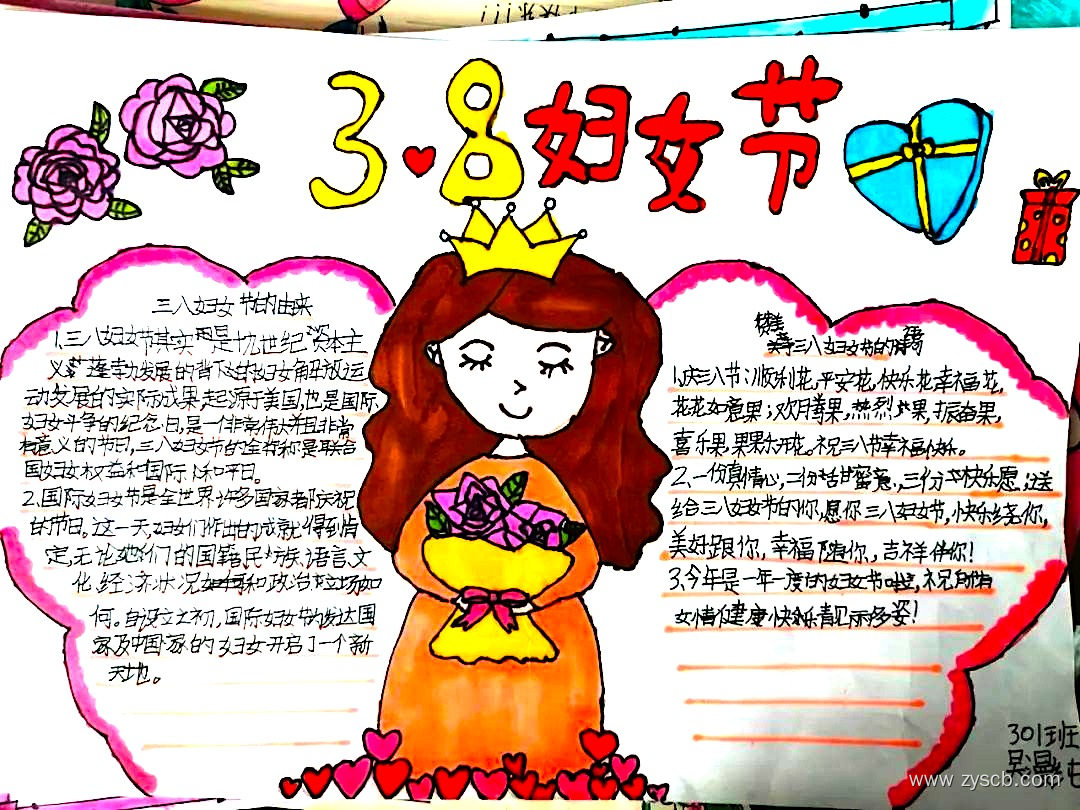 3.8妇女节
三八妇女节的由来
1.三八妇女节其实是十九世纪资本主
义蓬蓬勃发展的背下的妇女解放运
动发展的实际成果,起源于美国,也是国际
妇女斗争的纪念日,是一个非常伟大并且非常
有意义的节日,三八妇女节的全称是联合
国妇女权益和国际和平日。
2.国际妇女节是全世界许多国家都庆祝
的节日。这一天,妇女们作出的成就得到肯
定,无论她们的国籍、民族、语言、文
化、经济状况和政治立场如
何。自设立之初,国际妇女节为发达国
家及中国家的妇女开启了一个新
天地。
三八妇女节的
1.庆三八节:顺利花,平安花,快乐花,幸福花,
花花如意果;欢月果,热烈果,振奋果,
喜乐果,果果乐开花。祝三八节幸福快乐。
2.一份真情心,二份甜蜜意,三份快乐愿:送
给三八妇女节的你,愿你三八妇女节,快乐绕你,
美好跟你,幸福随你,吉祥伴你!
3.今年是一年一度的妇女节啦,祝所有
女情健康快乐靓丽多姿!
301班
www.zyscb.com